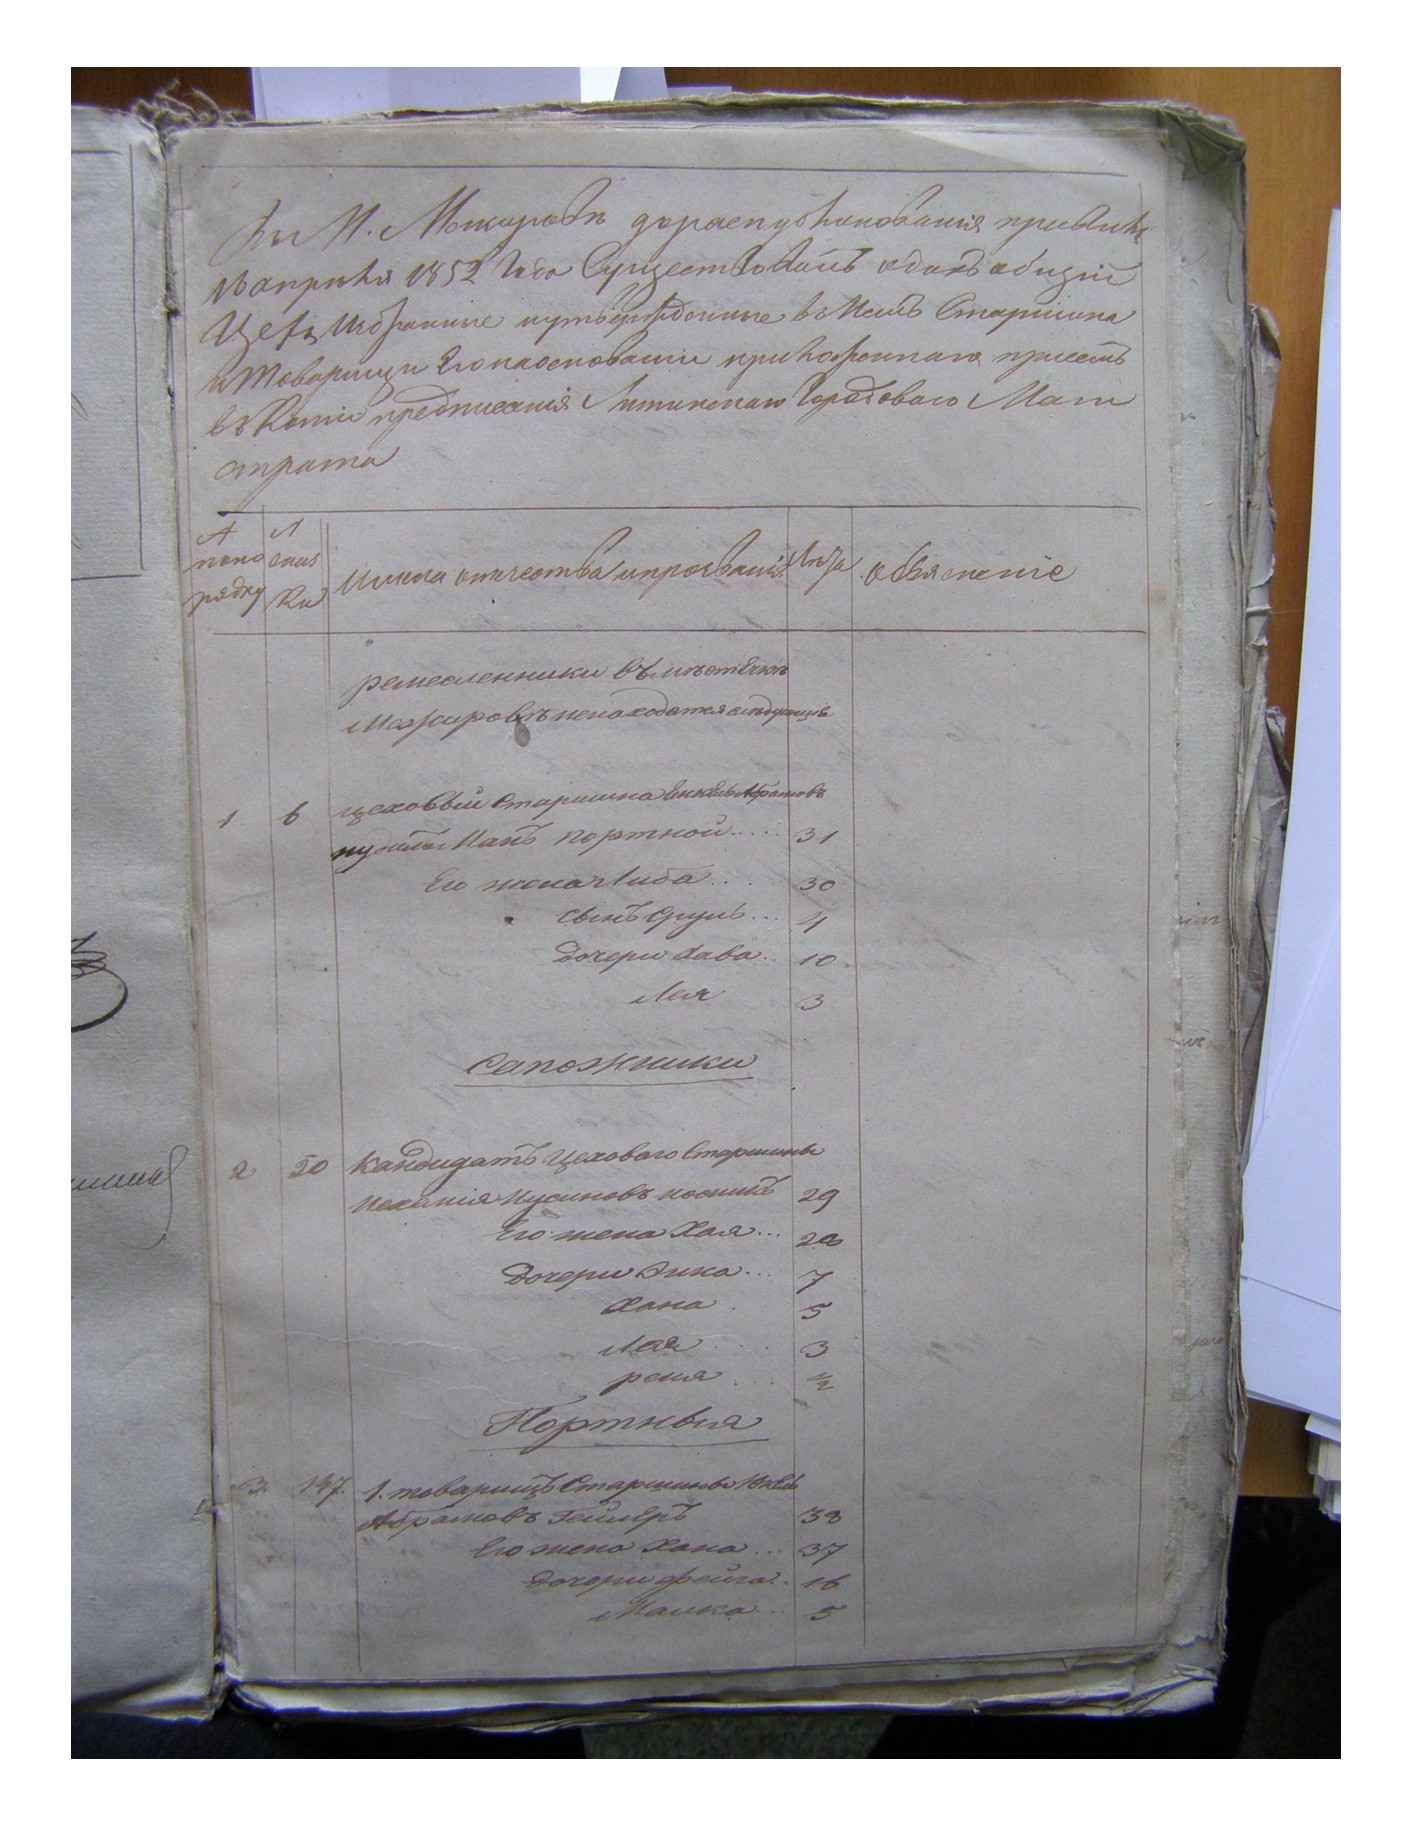 М. Межировъ до распубликованія правилъ
18 апрѣля 1852 Года Существовалъ одинъ общій
Цехъ Избранные и утвержденные в Старшина
и товарищи Его на основаніи приложенного при семъ
въ Копіи предписанія Литинскаго Городоваго Маги
страта
№ № 
попо ския
рядку ки Имена отчества и прозванія Лѣта объясненіе
ремесленники въ мѣстечкѣ
Межировѣ не находятся следующіе
1 6 цеховый Старшина Абрамовъ
портной.... 31
Его жена Либа.... 30
сынъ Сруль... 4
дочери Хава.. 10.
Лея 3
Сапожники
2 50 Кандидатъ Цехового Старшины
29
Его жена Хая... 28
дочери Энка... 7
Хана . 5
Лея ... 3
реня ... ½
Портныя
3. 147. 1. товарищъ Старшины
Абрамовъ 38
Его жена Хана ... 37
дочери фейга.. 16
Малка ... 5